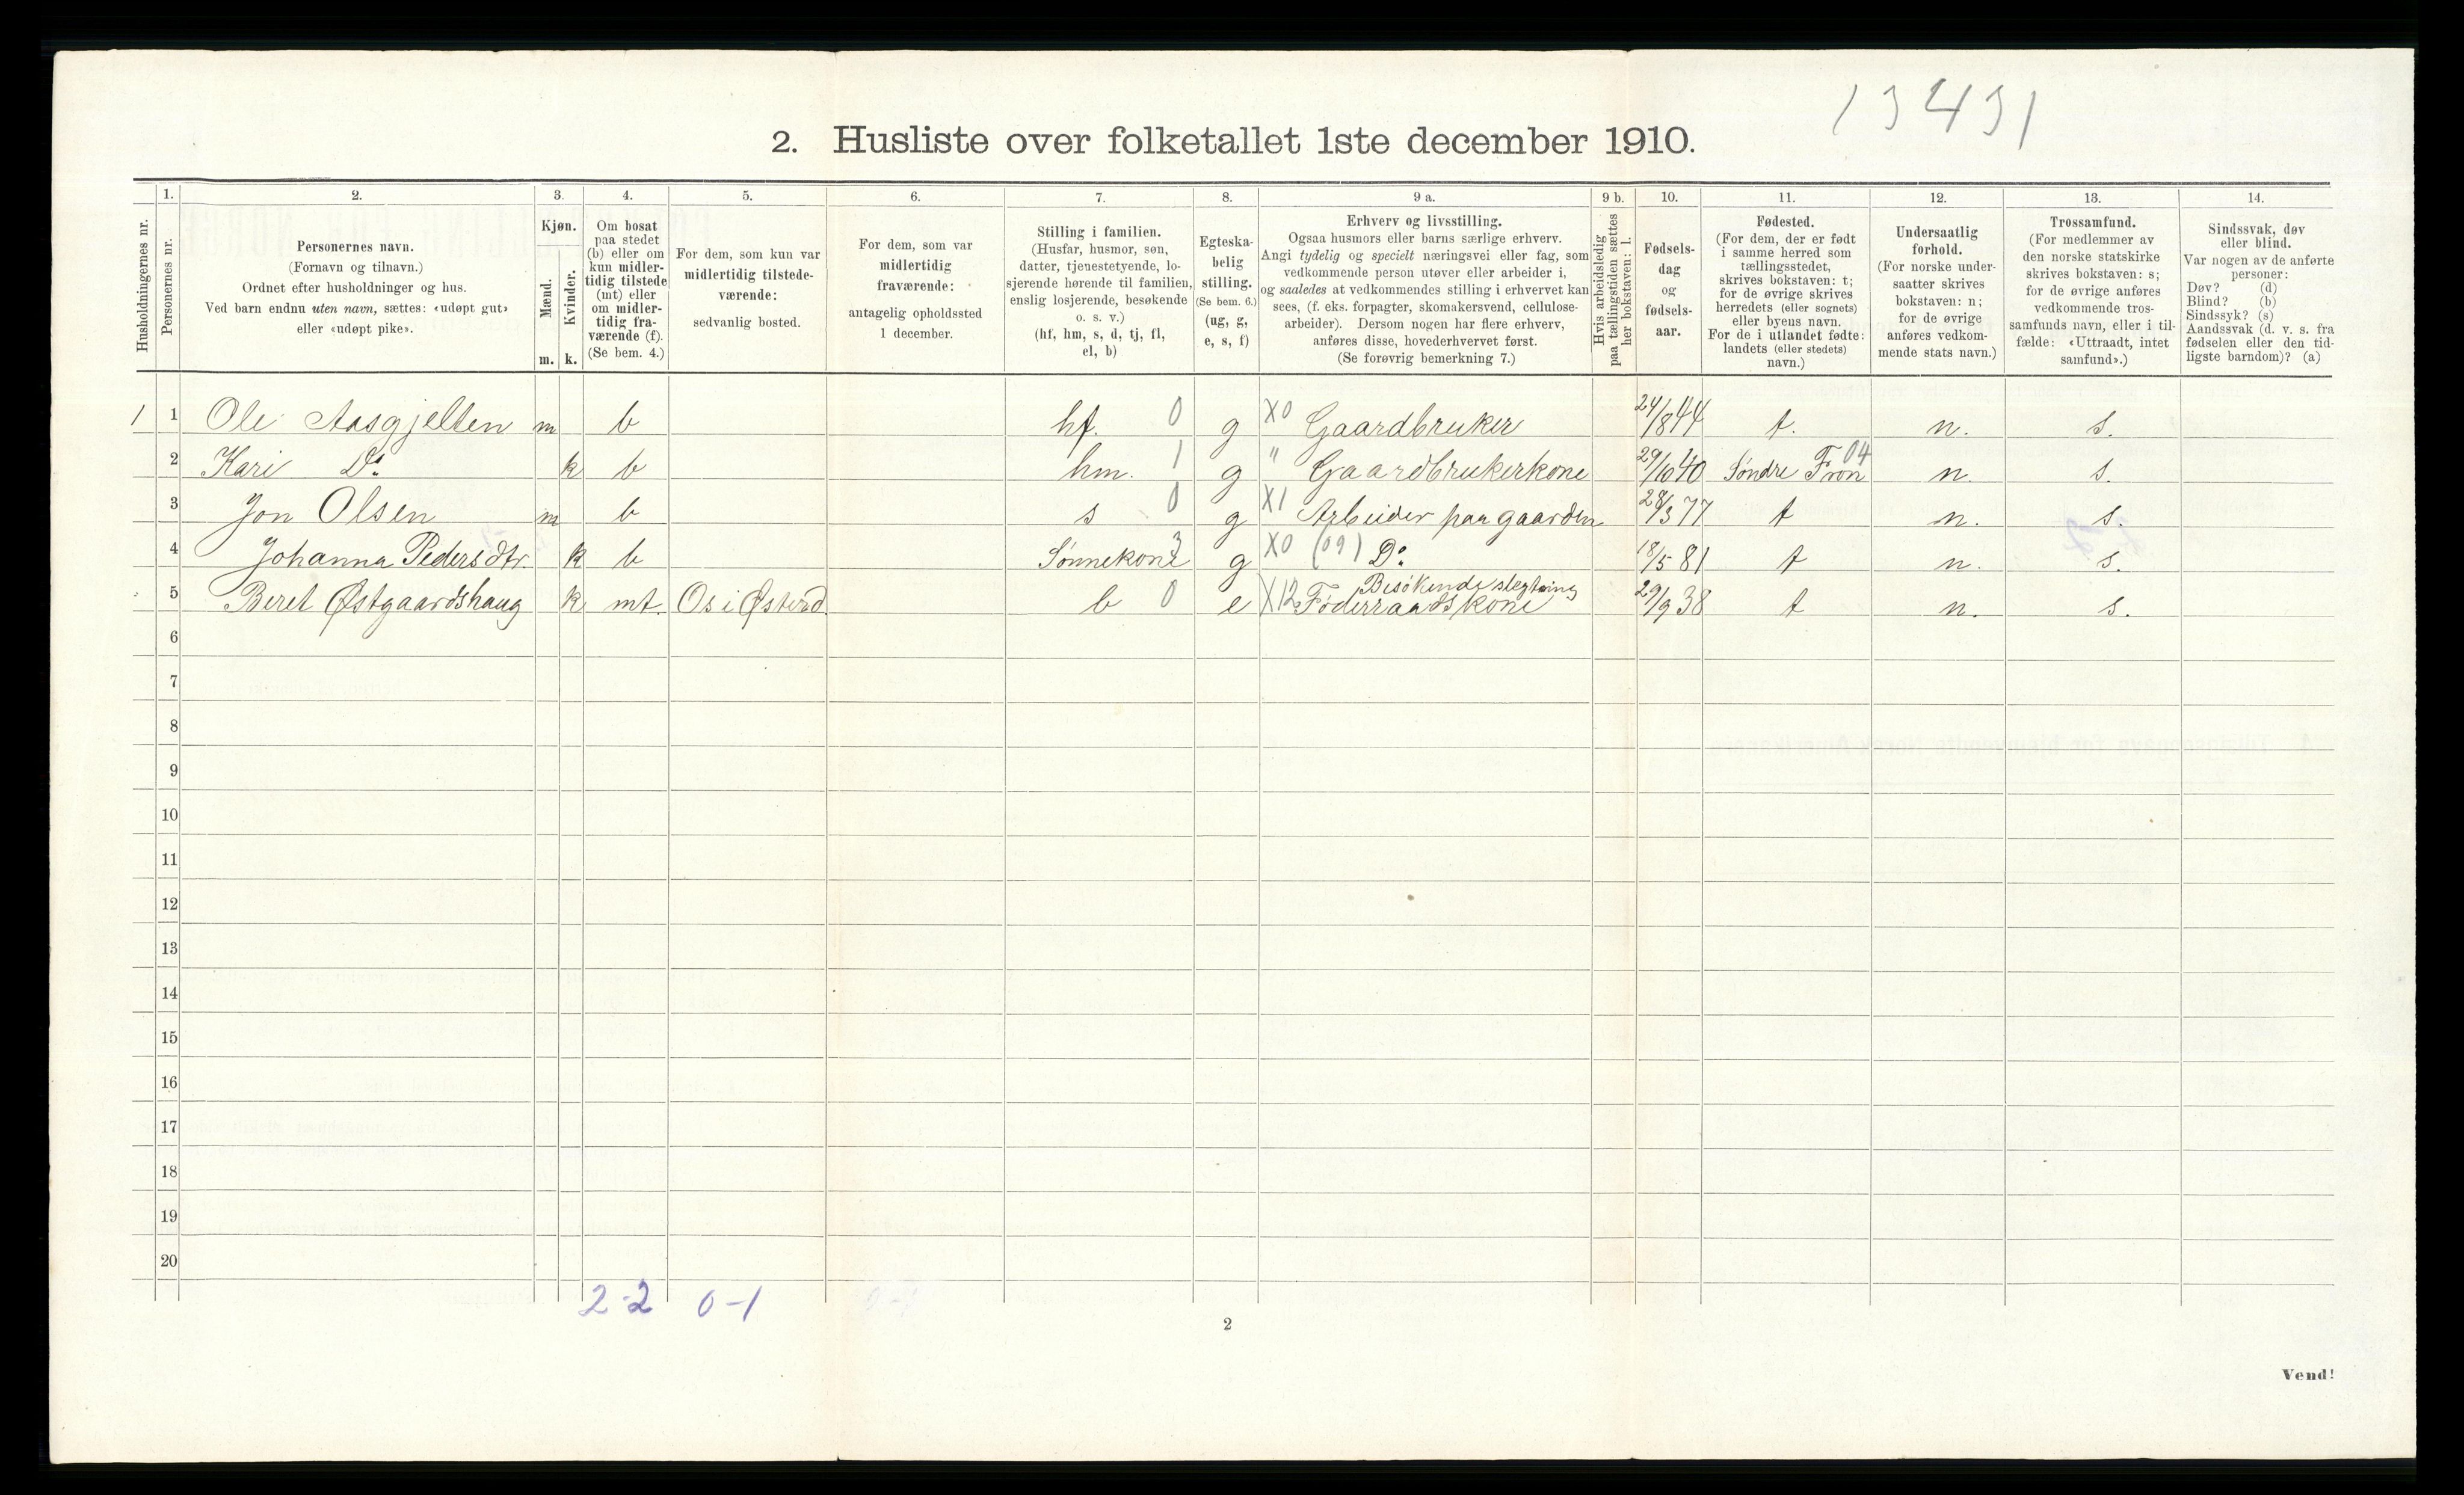 13431
2. Husliste over folketallet 1ste december 1910.
Husholdningernes nr.
1.
Personernes nr.
2.
Personernes navn.
(Fornavn og tilnavn.)
Ordnet efter husholdninger og hus.
Ved barn endnu uten navn, sættes: «udøpt gut»
eller «udøpt pike».
3.
Kjøn.
Mænd.
Kvinder.
m. k.
4.
Om bosat
paa stedet
(b) eller om
kun midler-
tidig tilstede
(mt) eller
om midler-
tidig fra-
værende (f).
(Se bem. 4.)
5.
For dem, som kun var
midlertidig tilstede-
værende:
sedvanlig bosted.
6.
For dem, som var
midlertidig
fraværende:
antagelig opholdssted
1 december.
7.
Stilling i familien.
(Husfar, husmor, søn,
datter, tjenestetyende, lo-
sjerende hørende til familien,
enslig losjerende, besøkende
o. s. v.)
(hf, hm, s, d, tj, fl,
el, b)
8.
Egteska-
belig
stilling.
(Se bem. 6.)
(ug, g,
e, s, f)
9 a.
Erhverv og livsstilling.
Ogsaa husmors eller barns særlige erhverv.
Angi tydelig og specielt næringsvei eller fag, som
vedkommende person utøver eller arbeider i,
og saaledes at vedkommendes stilling i erhvervet kan
sees, (f. eks. forpagter, skomakersvend, cellulose-
arbeider). Dersom nogen har flere erhverv,
anføres disse, hovederhvervet først.
(Se forøvrig bemerkning 7.)
9 b.
Hvis arbeidsledig
paa tællingstiden sættes
her bokstaven: l.
10.
Fødsels-
dag
og
fødsels-
aar.
11.
Fødested.
(For dem, der er født
i samme herred som
tællingsstedet,
skrives bokstaven: t;
for de øvrige skrives
herredets (eller sognets)
eller byens navn.
For de i utlandet fødte:
landets (eller stedets)
navn.)
12.
Undersaatlig
forhold.
(For norske under-
saatter skrives
bokstaven: n;
for de øvrige
anføres vedkom-
mende stats navn.)
13.
Trossamfund.
(For medlemmer av
den norske statskirke
skrives bokstaven: s;
for de øvrige anføres
vedkommende tros-
samfunds navn, eller i til-
fælde: «Uttraadt, intet
samfund».)
14.
Sindssvak, døv
eller blind.
Var nogen av de anførte
personer:
Døv? (d)
Blind? (b)
Sindssyk? (s)
Aandssvak (d. v. s. fra
fødselen eller den tid-
ligste barndom)? (a)
1 1 Ole Aasgjelten m b hf. 0 g X0 Gaardbruker 24/8 44 t. n. s.
2 Kari Do. k b hm. 1 g " Gaardbrukerkone 29/10 40 Søndre Fron 04 n. s.
3 Jon Olsen m b s 0 g X1 Arbeider paa gaarden 28/3 77 t n. s.
4 Johanna Pedersdtr. k b Sønnekone 3 g X0 (09) Do. 18/5 81 t n. s.
5 Beret Østgaardshaug k mt. Os i Østerd. b 0 e X12 Besøkende slegtning
Føderraadskone 29/9 38 t n. s.
6
7
8
9
10
11
12
13
14
15
16
17
18
19
20
2-2 0-1
2
Vend!